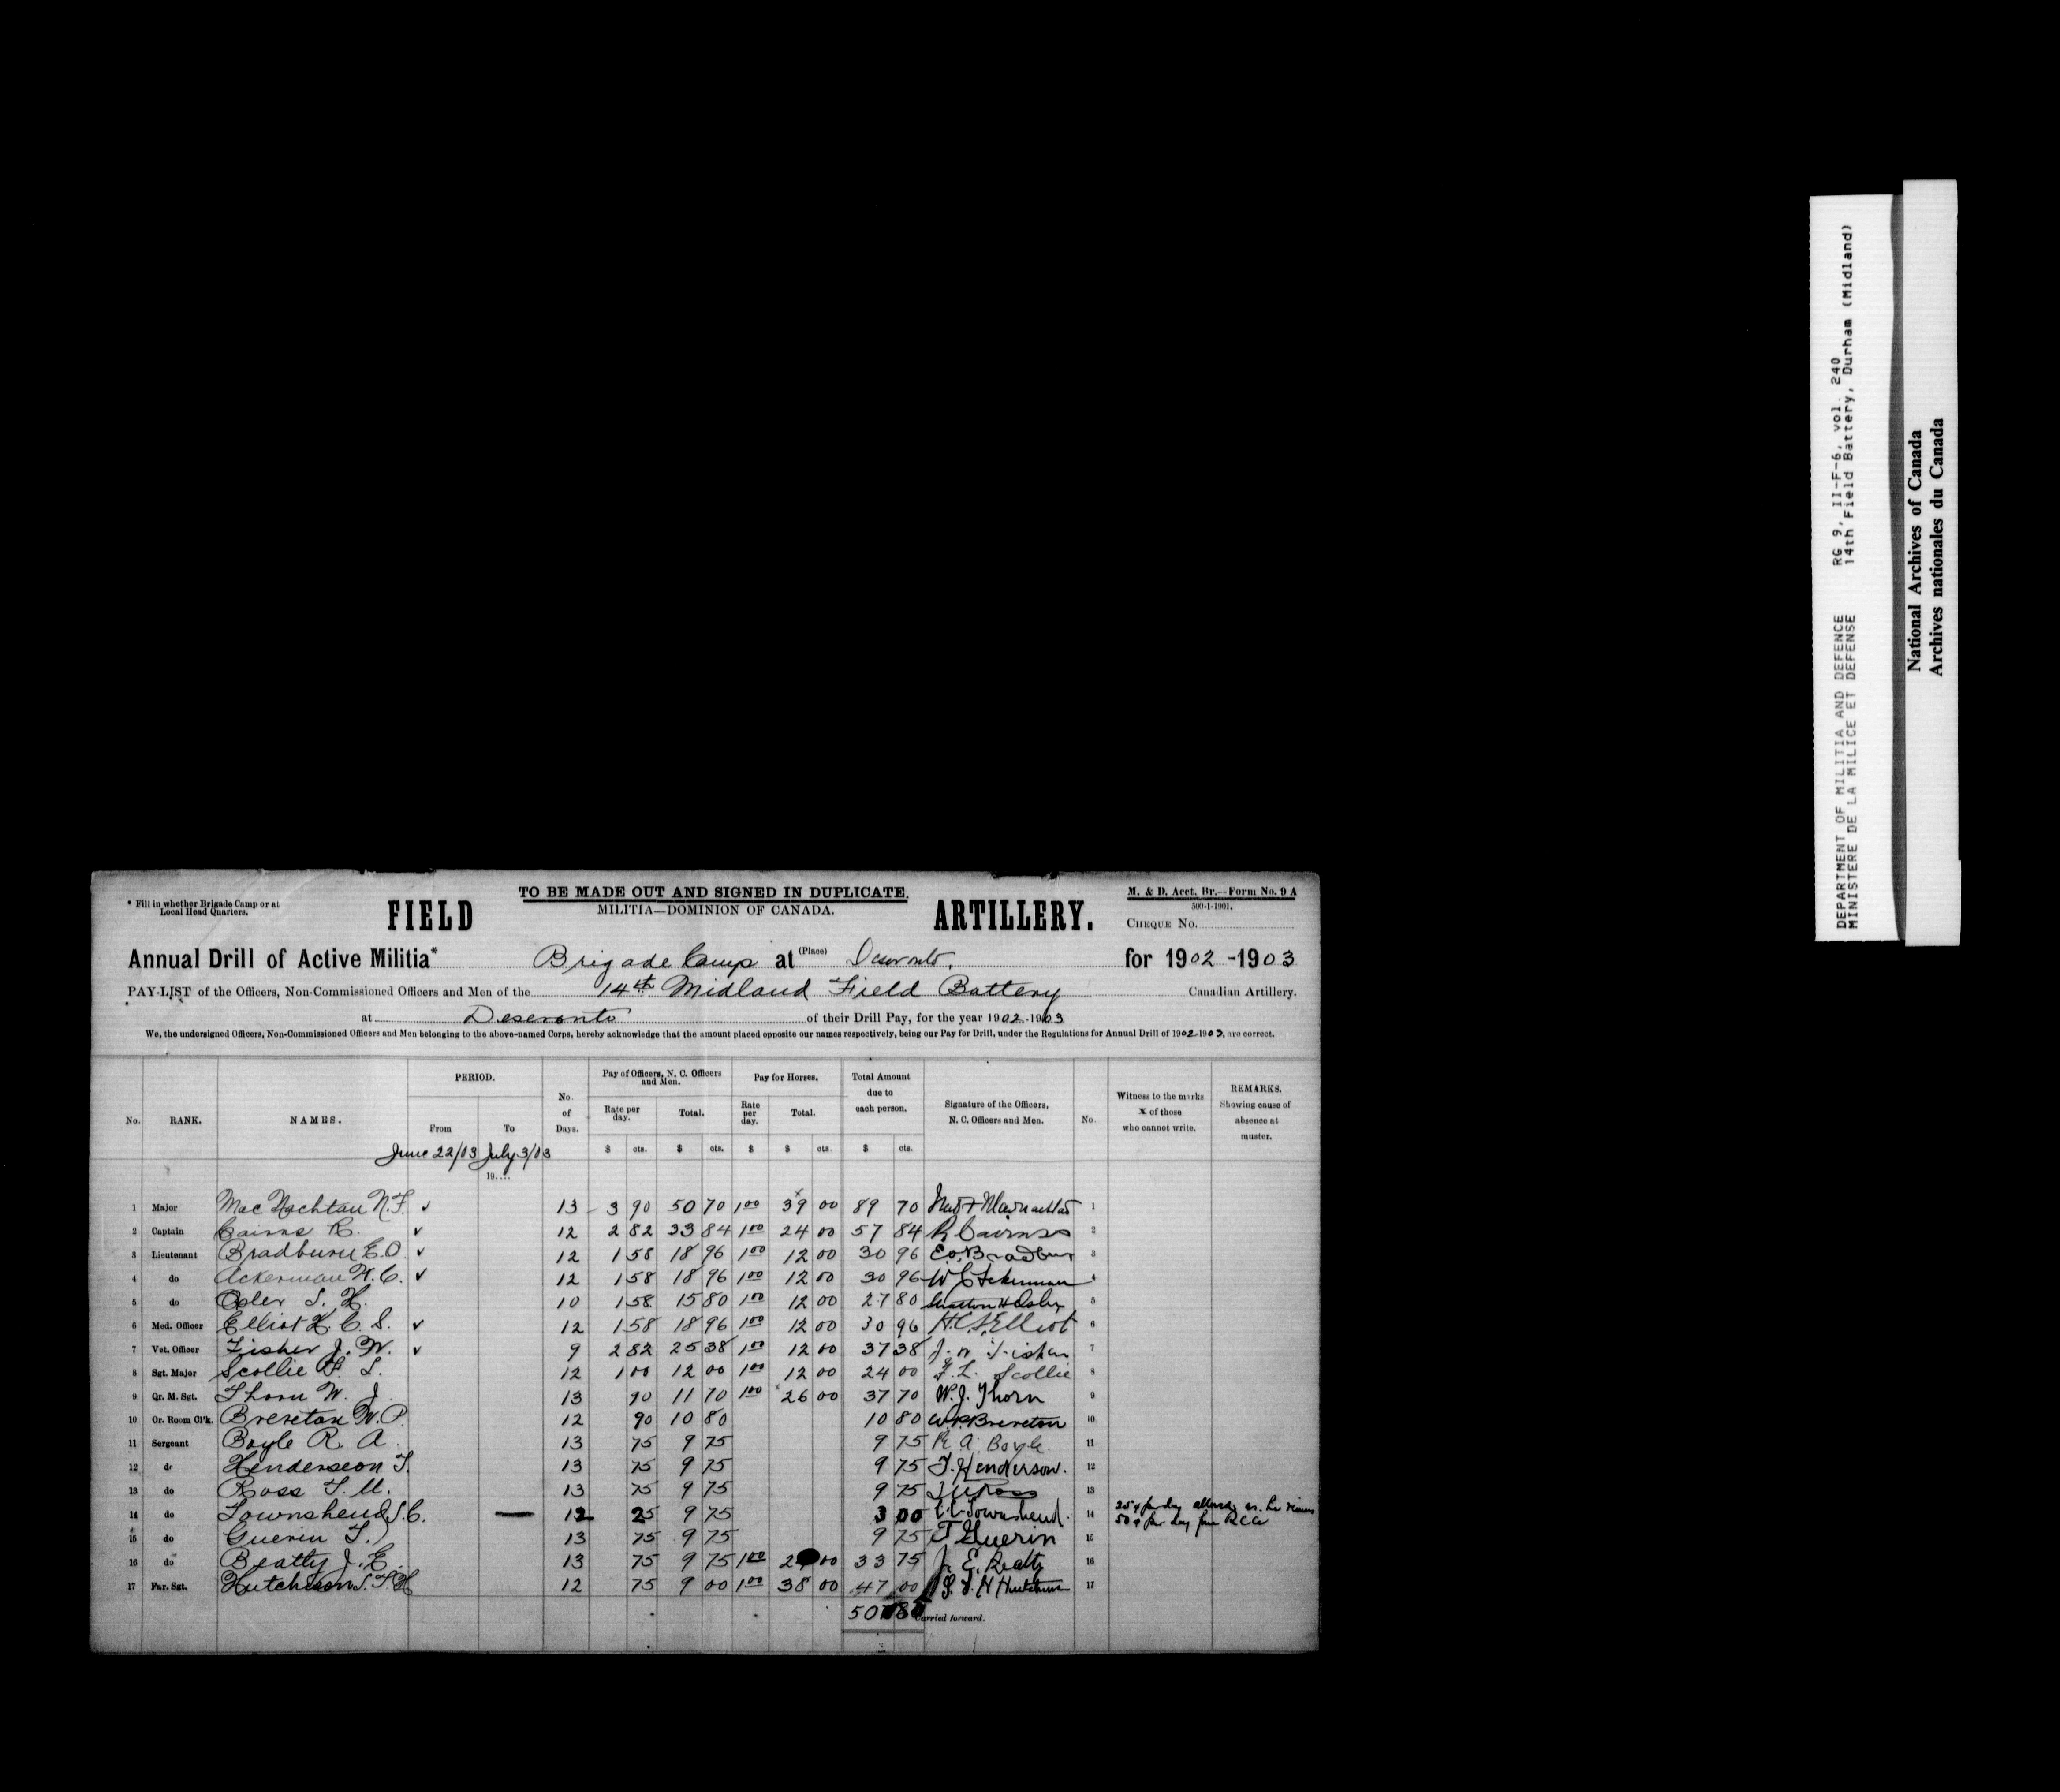 * Fill in whether Brigade Camp or at
Local Head Quarters.
TO BE MADE OUT AND SIGNED IN DUPLICATE.
MILITIA—DOMINION OF CANADA.
FIELD ARTILLERY.
M. & D. Acct. Br.—Form No. 9 A
500-1-1901.
CHEQUE No.
Annual Drill of Active Militia* Brigade Camp at (Place) Deseronto, for 1902-1903
PAY-LIST of the Officers, Non-Commissioned Officers and Men of the 14th Midland Field Battery Canadian Artillery.
at Deseronto of their Drill Pay, for the year 1902-1903
We, the undersigned Officers, Non-Commissioned Officers and Men belonging to the above-named Corps, hereby acknowledge that the amount placed opposite our names respectively, being our Pay for Drill, under the Regulations for Annual Drill of 1902-1903, are correct.
No. RANK. NAMES. PERIOD. From To No. of Days. Pay of Officers, N. C. Officers and Men. Rate per day. Total. Pay for Horses. Rate per day. Total. Total Amount due to each person. Signature of the Officers, N. C. Officers and Men. No. Witness to the marks X of those who cannot write. REMARKS. Showing cause of absence at muster.
June 22/03 July 3/03
19....
$ cts. $ cts. $ $ cts. $ cts.
1 Major MacNachtan N.F. ✓ 13 3 90 50 70 1 00 39 00 89 70 1
2 Captain Cairns R. ✓ 12 2 82 33 84 1 00 24 00 57 84 R Cairns 2
3 Lieutenant Bradburn E.O. ✓ 12 1 58 18 96 1 00 12 00 30 96 E.O. Bradburn 3
4 do Ackerman W.C. ✓ 12 1 58 18 96 1 00 12 00 30 96 W C Ackerman 4
5 do Osler S. H. 10 1 58 15 80 1 00 12 00 27 80 5
6 Med. Officer Elliot H. C. S. ✓ 12 1 58 18 96 1 00 12 00 30 96 H.C.S. Elliot 6
7 Vet. Officer Fisher J. W. ✓ 9 2 82 25 38 1 00 12 00 37 38 J. W. Fisher 7
8 Sgt. Major Scollie F. L. 12 1 00 12 00 1 00 12 00 24 00 F. L. Scollie 8
9 Qr. M. Sgt. Thorn W. J. 13 90 11 70 1 00 x 26 00 37 70 W. J. Thorn 9
10 Or. Room Cl'k. Brereton W. P. 12 90 10 80 10 80 W.P. Brereton 10
11 Sergeant Boyle R. A. 13 75 9 75 9 75 R. A. Boyle. 11
12 do Henderson T. 13 75 9 75 9 75 T. Henderson. 12
13 do Ross T. M. 13 75 9 75 9 75 T M Ross 13
14 do Townshend S. C. — 12 25 9 75 3 00 Townshend. 14 25¢ per day as he
50¢ per day from RCA
15 do Guerin T. 13 75 9 75 9 75 T Guerin 15
16 do Beatty J. E. 13 75 9 75 1 00 00 33 75 J. E. Beatty 16
17 Far. Sgt. Hutchison S. T. H 12 75 9 00 1 00 38 00 47 00 S. T. H Hutchison 17
Carried forward.
DEPARTMENT OF MILITIA AND DEFENCE RG 9, II-F-6, vol. 240
MINISTERE DE LA MILICE ET DEFENSE 14th Field Battery, Durham (Midland)
National Archives of Canada
Archives nationales du Canada